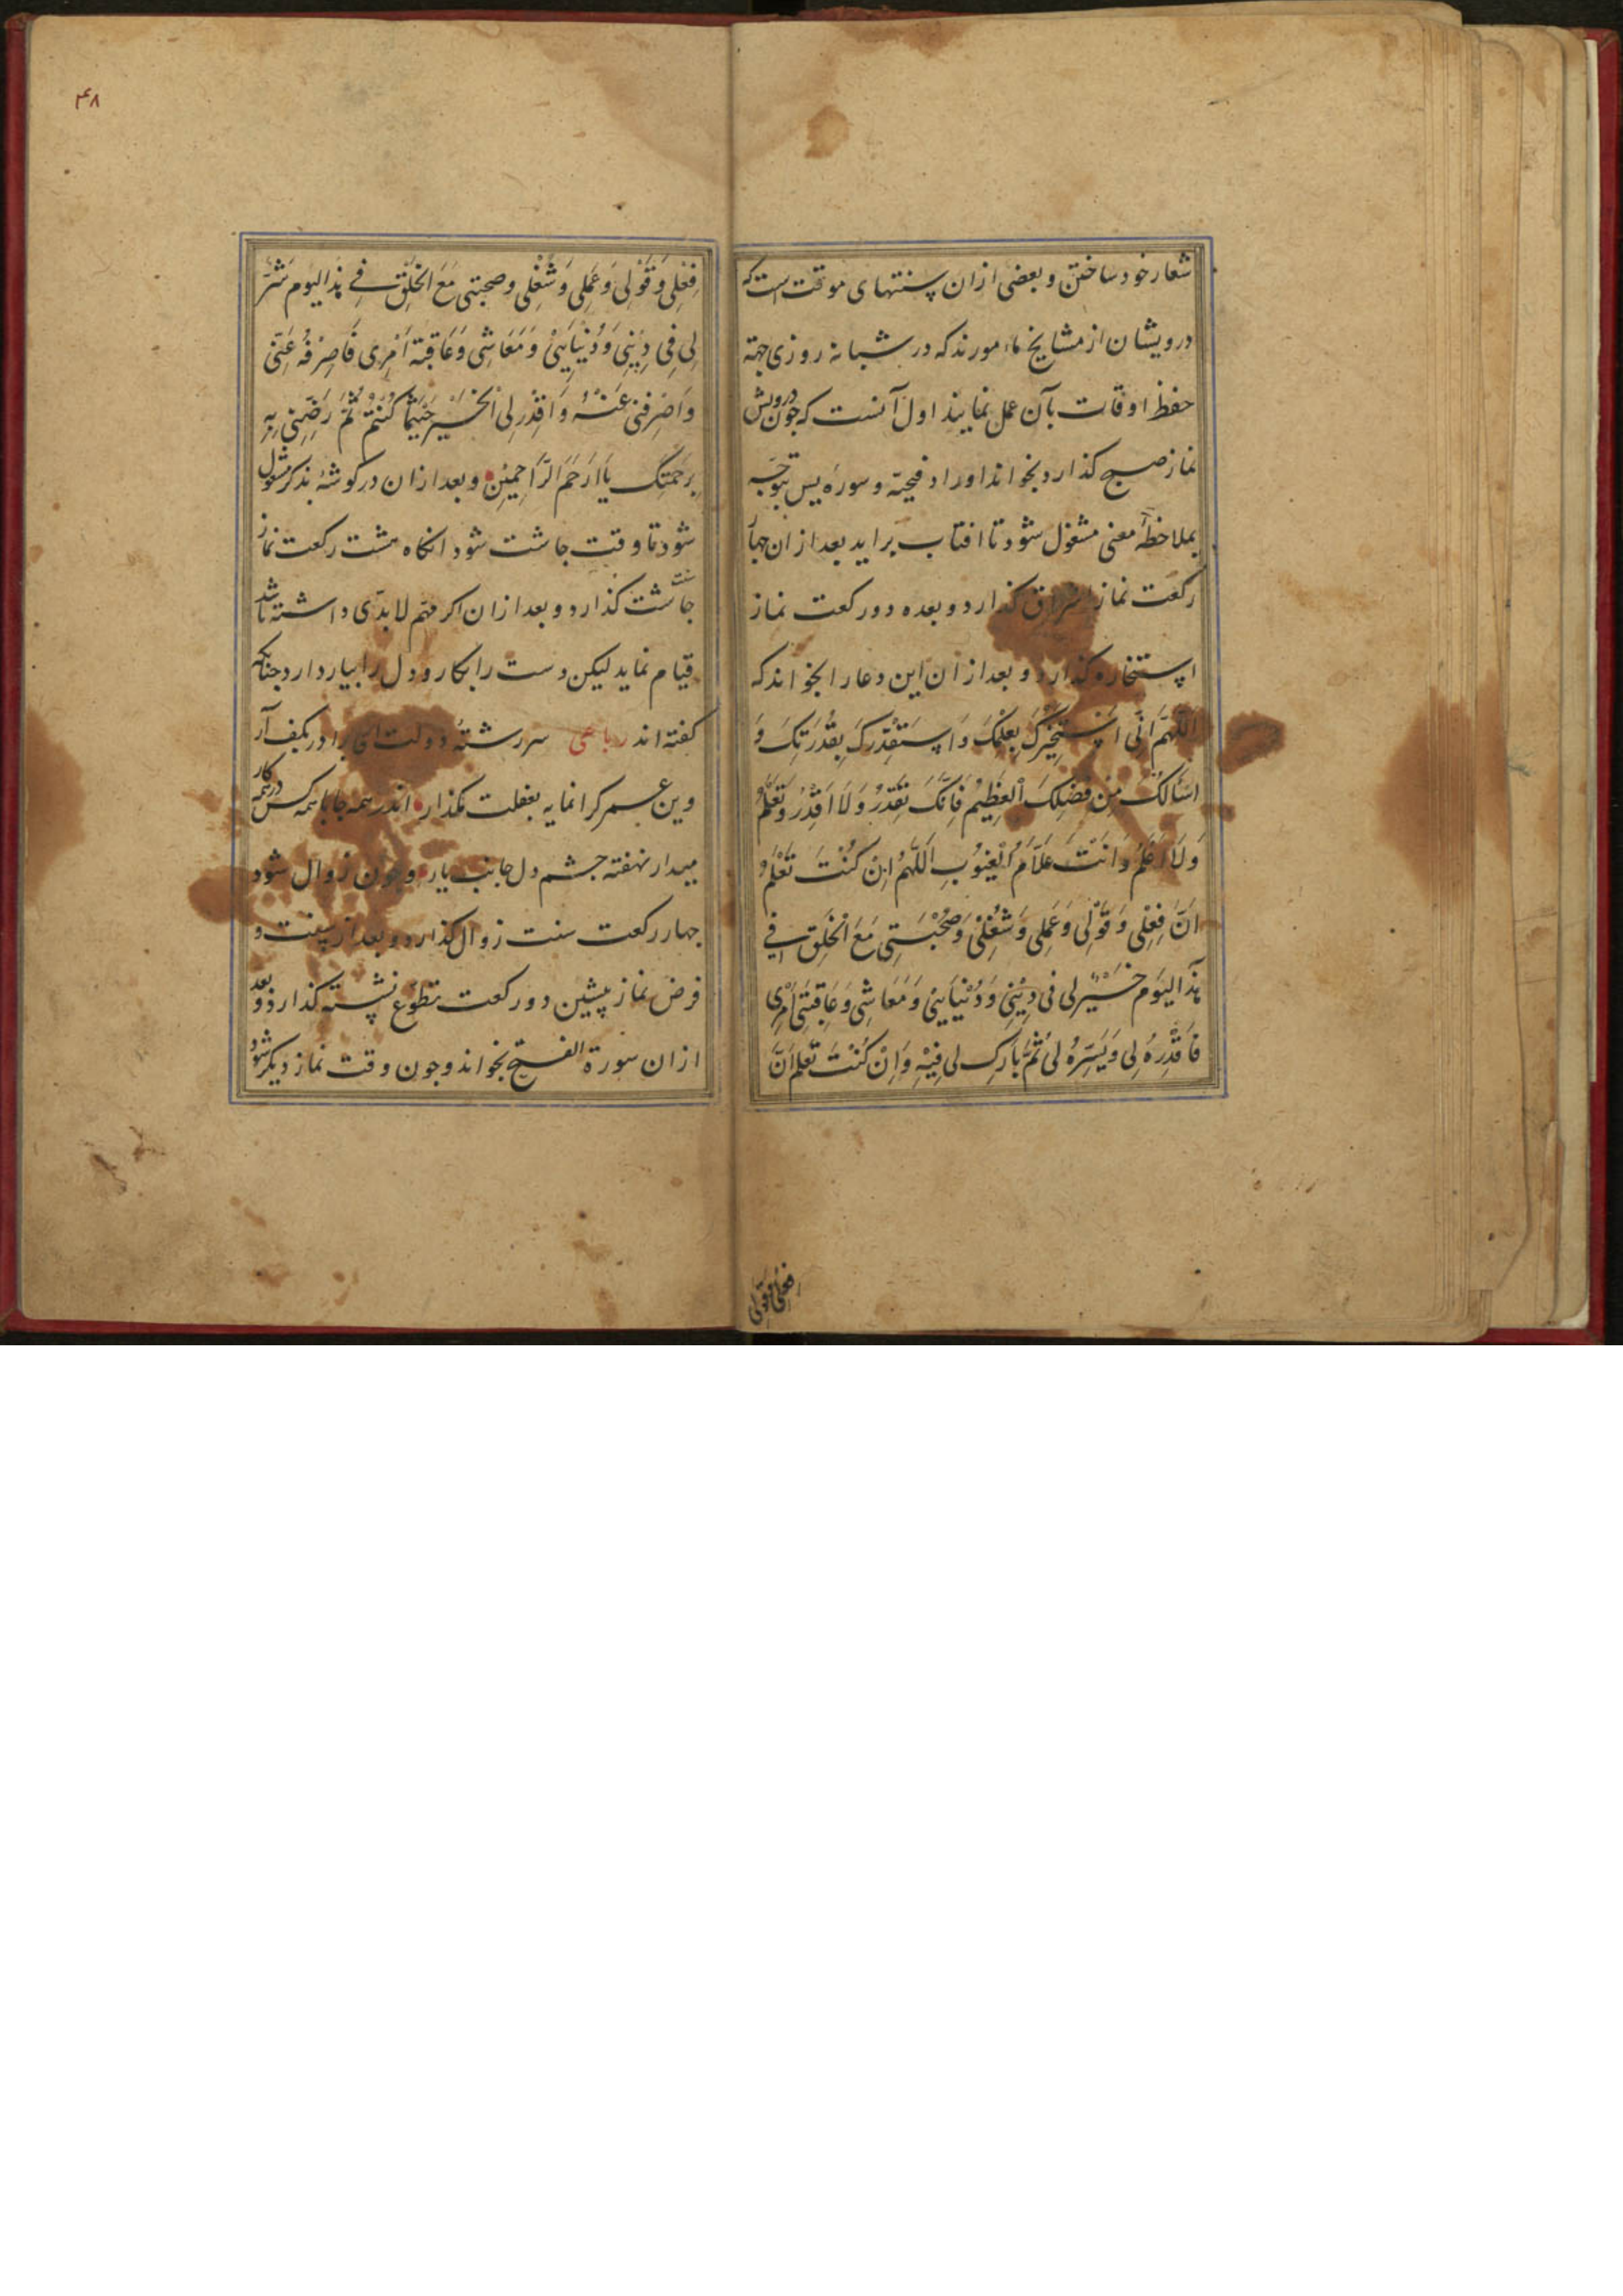 شعار خود ساختن و بعضی ازان سنتهای موقت است که
درویشان از مشایخ مامورند که در شبانه روزی جهة
حفظ اوقات بآن عمل نمایند اول آنست که چون درویش
نماز صبح کذارد بخواند اوراد فتحیّه و سورهٔ یس بتوجّه
بملاحظهٔ معنی مشغول شود تا افتاب براید بعد ازان چهار
رکعت نماز اشراق کذارد و بعده دو رکعت نماز
استخاره کذارد و بعد ازان این دعا را بخواند که
اَللّٰهُمَّ اِنّی اَسْتَخِیْرُکَ بِعِلْمِکَ وَاَسْتَقْدِرُکَ بِقُدْرَتِکَ وَ
اَسْأَلُکَ مِنْ فَضْلِکَ الْعَظِیْمِ فَاِنَّکَ تَقْدِرُ وَلَا اَقْدِرُ وَتَعْلَمُ
وَلَا اَعْلَمُ وَاَنْتَ عَلَّامُ الْغُیُوْبِ اَللّٰهُمَّ اِنْ کُنْتَ تَعْلَمُ
اَنَّ فِعْلِی وَقَوْلِی وَعَمَلِی وَشُغْلِیْ وَصُحْبَتِی مَعَ الْخَلْقِ فِی
هٰذَا الْیَوْمِ خَیْرٌ لِی فِی دِیْنِی وَدُنْیَایَیْنِی وَمَعَاشِی وَعَاقِبَتِی اَمْرِی
فَاقْدِرْهُ لِی وَیَسِّرْهُ لِی ثُمَّ بَارِکْ لِی فِیْهِ وَاِنْ کُنْتَ تَعْلَمُ اَنَّ
فعلی وقولی
۴۸
فِعْلِی وَقَوْلِی وَعَمَلِی وَشُغْلِی وصحبتی مَعَ الْخَلْقِ فِی هٰذَا الْیَوْمِ شَرٌّ
لِی فِی دِیْنِی وَدُنْیَایَیْنِی وَمَعَاشِی وَعَاقِبَةِ اَمْرِی فَاصْرِفْهُ عَنِّی
وَاصْرِفْنِی عَنْهُ وَاقْدِرْ لِی الْخَیْرَ حَیْثُمَا کُنْتُمْ ثُمَّ رَضِّنِی بِهِ
بِرَحْمَتِکَ یَا اَرْحَمَ الرَّاحِمِیْنَ و بعد ازان در کوشهٔ بذکر مشغول
شود تا وقت چاشت شود انکاه هشت رکعت نماز
چاشت کذارد و بعد ازان اکر مهم لابدّی داشته باشد
قیام نماید لیکن دست را بکار و دل را بیار دارد چنانکه
کفته اند رباعی سررشتهٔ دولت ای برادر بکف آر
وین عمر کرانمایه بغفلت مکذار اندر همه جا با همه کس در همه کار
میدار نهفته چشم دل جانب یار و چون زوال شود
چهار رکعت سنت زوال کذارد و بعد از سنت و
فرض نماز پیشین دو رکعت تطوّع نشسته کذارد و بعد
ازان سورة الفتح بخواند و چون وقت نماز دیکر شود